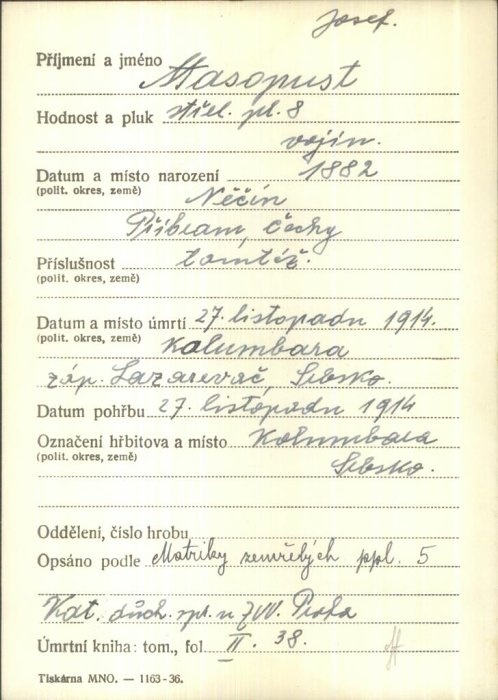 Josef.
Příjmení a jméno Masopust
Hodnost a pluk střel. pl. 8
vojín.
Datum a místo narození 1882
(polit. okres, země) Něčín
Příbram, Čechy
Příslušnost tomtéž.
(polit. okres, země)
Datum a místo úmrtí 27. listopadu 1914.
(polit. okres, země) Kolumbara
záp. Lazarevač, Srbsko.
Datum pohřbu 27. listopadu 1914
Označení hřbitova a místo Kolumbara
(polit. okres, země) Srbsko.
Oddělení, číslo hrobu
Opsáno podle Matriky zemřelých ppl. 5
Kat. duch. spr. u ZVV. Praha
Úmrtní kniha: tom., fol II. 38.
Tiskárna MNO. — 1163-36.